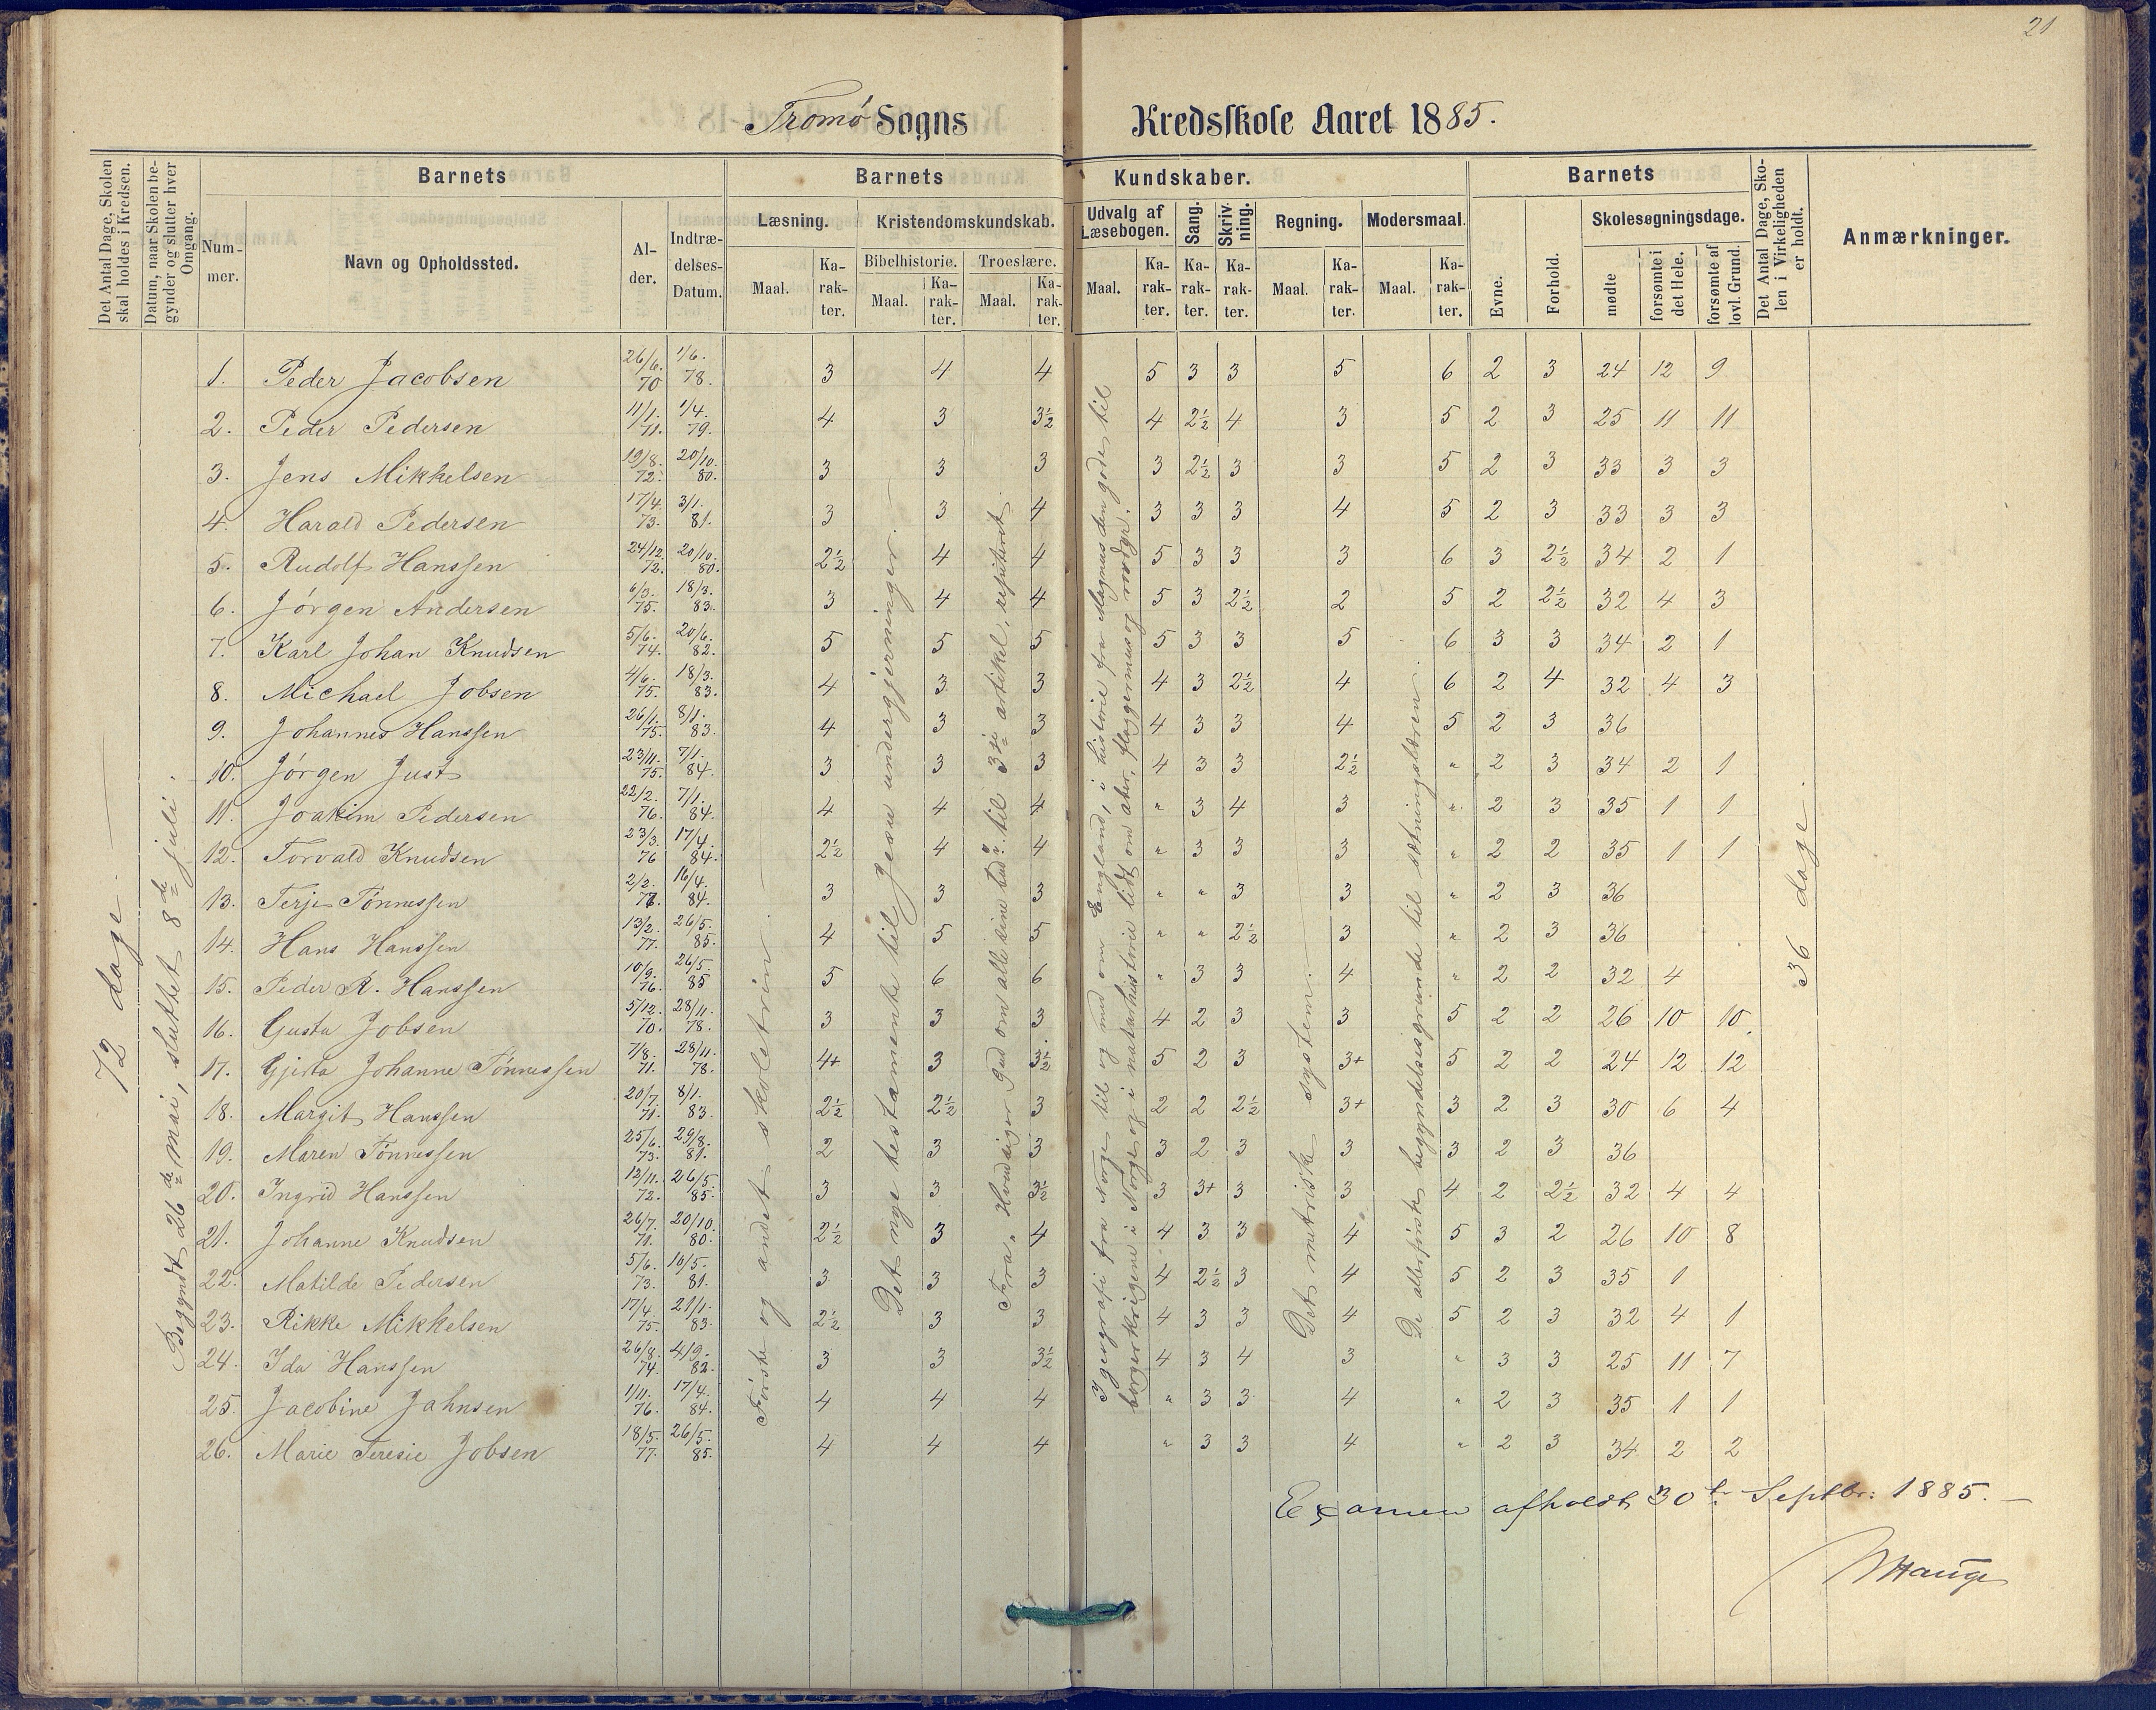 21
Tromø Sogns Kredsskole Aaret 1885.
Det Antal Dage, Skolen skal holdes i Kredsen.
Datum, naar Skolen begynder og slutter hver Omgang.
Barnets
Nummer.
Navn og Opholdssted.
Alder.
Indtrædelses-Datum.
Barnets Kundskaber.
Læsning.
Maal.
Karakter.
Kristendomskundskab.
Bibelhistorie.
Maal.
Karakter.
Troeslære.
Maal.
Karakter.
Udvalg af Læsebogen.
Maal.
Karakter.
Sang.
Karakter.
Skrivning.
Karakter.
Regning.
Maal.
Karakter.
Modersmaal.
Maal.
Karakter.
Barnets
Evne.
Forhold.
Skolesøgningsdage.
mødte
forsømte i det Hele.
forsømte af lovl. Grund.
Det Antal Dage, Skolen i Virkeligheden er holdt.
Anmærkninger.
72 dage.
Begyndt 26de mai, sluttet 8de juli.
Første og andet skoletrin.
Det nye testamente til Jesu undergjerninger.
Fra „Hvad siger Gud om alle sine bud": til 3die artikel, repeteret.
I geografi fra Norge til og med om England, i historie fra Magnus den gode til
borgerkrigene i Norge og i naturhistorie lidt om aber, flaggermus og rovdyr.
Det metriske system.
De allerførste begyndelsesgrunde til sætningslæren.
36 dage.
1. Peder Jacobsen 26/6. 70 1/6. 78. 3 4 4 5 3 3 5 6 2 3 24 12 9
2. Peder Pedersen 11/1. 71. 1/4. 79. 4 3 3½ 4 2½ 4 3 5 2 3 25 11 11
3. Jens Mikkelsen 19/8. 72. 20/10. 80. 3 3 3 3 2½ 3 3 5 2 3 33 3 3
4. Harald Pedersen 17/4. 73. 3/1. 81. 3 3 4 3 3 3 4 5 2 3 33 3 3
5. Rudolf Hanssen 24/12. 72. 20/10. 80. 2½ 4 4 5 3 3 3 6 3 2½ 34 2 1
6. Jørgen Andersen 6/3. 75. 18/3. 83. 3 4 4 5 3 2½ 2 5 2 2½ 32 4 3
7. Karl Johan Knudsen 5/6. 74. 20/6. 82. 5 5 5 5 3 3 5 6 3 3 34 2 1
8. Michael Jobsen 4/6. 75. 18/3. 83. 4 3 3 4 3 2½ 4 6 2 4 32 4 3
9. Johannes Hanssen 26/1. 75. 8/1. 83. 4 3 3 4 3 3 4 5 2 3 36
10. Jørgen Just 23/11. 75. 7/1. 84. 3 3 3 4 3 3 2½ " 2 3 34 2 1
11. Joakim Pedersen 22/2. 76. 7/1. 84. 4 4 4 " 3 4 3 " 2 3 35 1 1
12. Torvald Knudsen 23/3. 76 17/4. 84. 2½ 4 4 " 3 3 3 " 2 2 35 1 1
13. Terje Tønnessen 2/2. 77. 16/4. 84. 3 3 3 " " 3 3 " 2 3 36
14. Hans Hanssen 13/2. 77. 26/5. 85. 4 5 5 " " 2½ 3 " 2 3 36
15. Peder R. Hanssen 10/9. 76. 26/5. 85 5 6 6 " 3 3 4 " 2 2 32 4
16. Gusta Jobsen 5/12. 70. 28/11. 78. 3 3 3 4 2 3 3 5 2 2 26 10 10.
17. Gjerta Johanne Tønnessen 7/8. 71. 28/11. 78. 4+ 3 3½ 5 2 3 3+ 5 2 2 24 12 12
18. Margit Hanssen 20/7. 71. 8/1. 83. 2½ 2½ 3 2 2 2½ 3+ 3 2 3 30 6 4
19. Maren Tønnessen 25/6. 73. 29/8. 81. 2 3 3 3 2 3 3 3 2 3 36
20. Ingrid Hanssen 12/11. 72. 26/5. 85. 3 3 3½ 3 3+ 3 3 4 2 2½ 32 4 4
21. Johanne Knudsen 26/7. 71. 20/10. 80. 2½ 3 4 4 3 3 4 5 3 2 26 10 8
22. Matilde Pedersen 5/6. 73. 16/5. 81. 3 3 3 4 2½ 3 4 5 2 3 35 1
23. Rikke Mikkelsen 17/4. 75. 21/1. 83. 2½ 3 3 4 3 3 4 5 2 3 32 4 1
24. Ida Hanssen 26/8. 74. 4/9. 82. 3 3 3½ 4 3 4 3 " 3 3 25 11 7
25. Jacobine Jahnsen 1/11. 76. 17/4. 84. 4 4 4 " 3 3 4 " 2 3 35 1 1
26. Marie Teresie Jobsen 18/5. 77. 26/5. 85. 4 4 4 " 3 3 4 " 2 3 34 2 2
Examen afholdt 30te Septbr: 1885.
Hauge